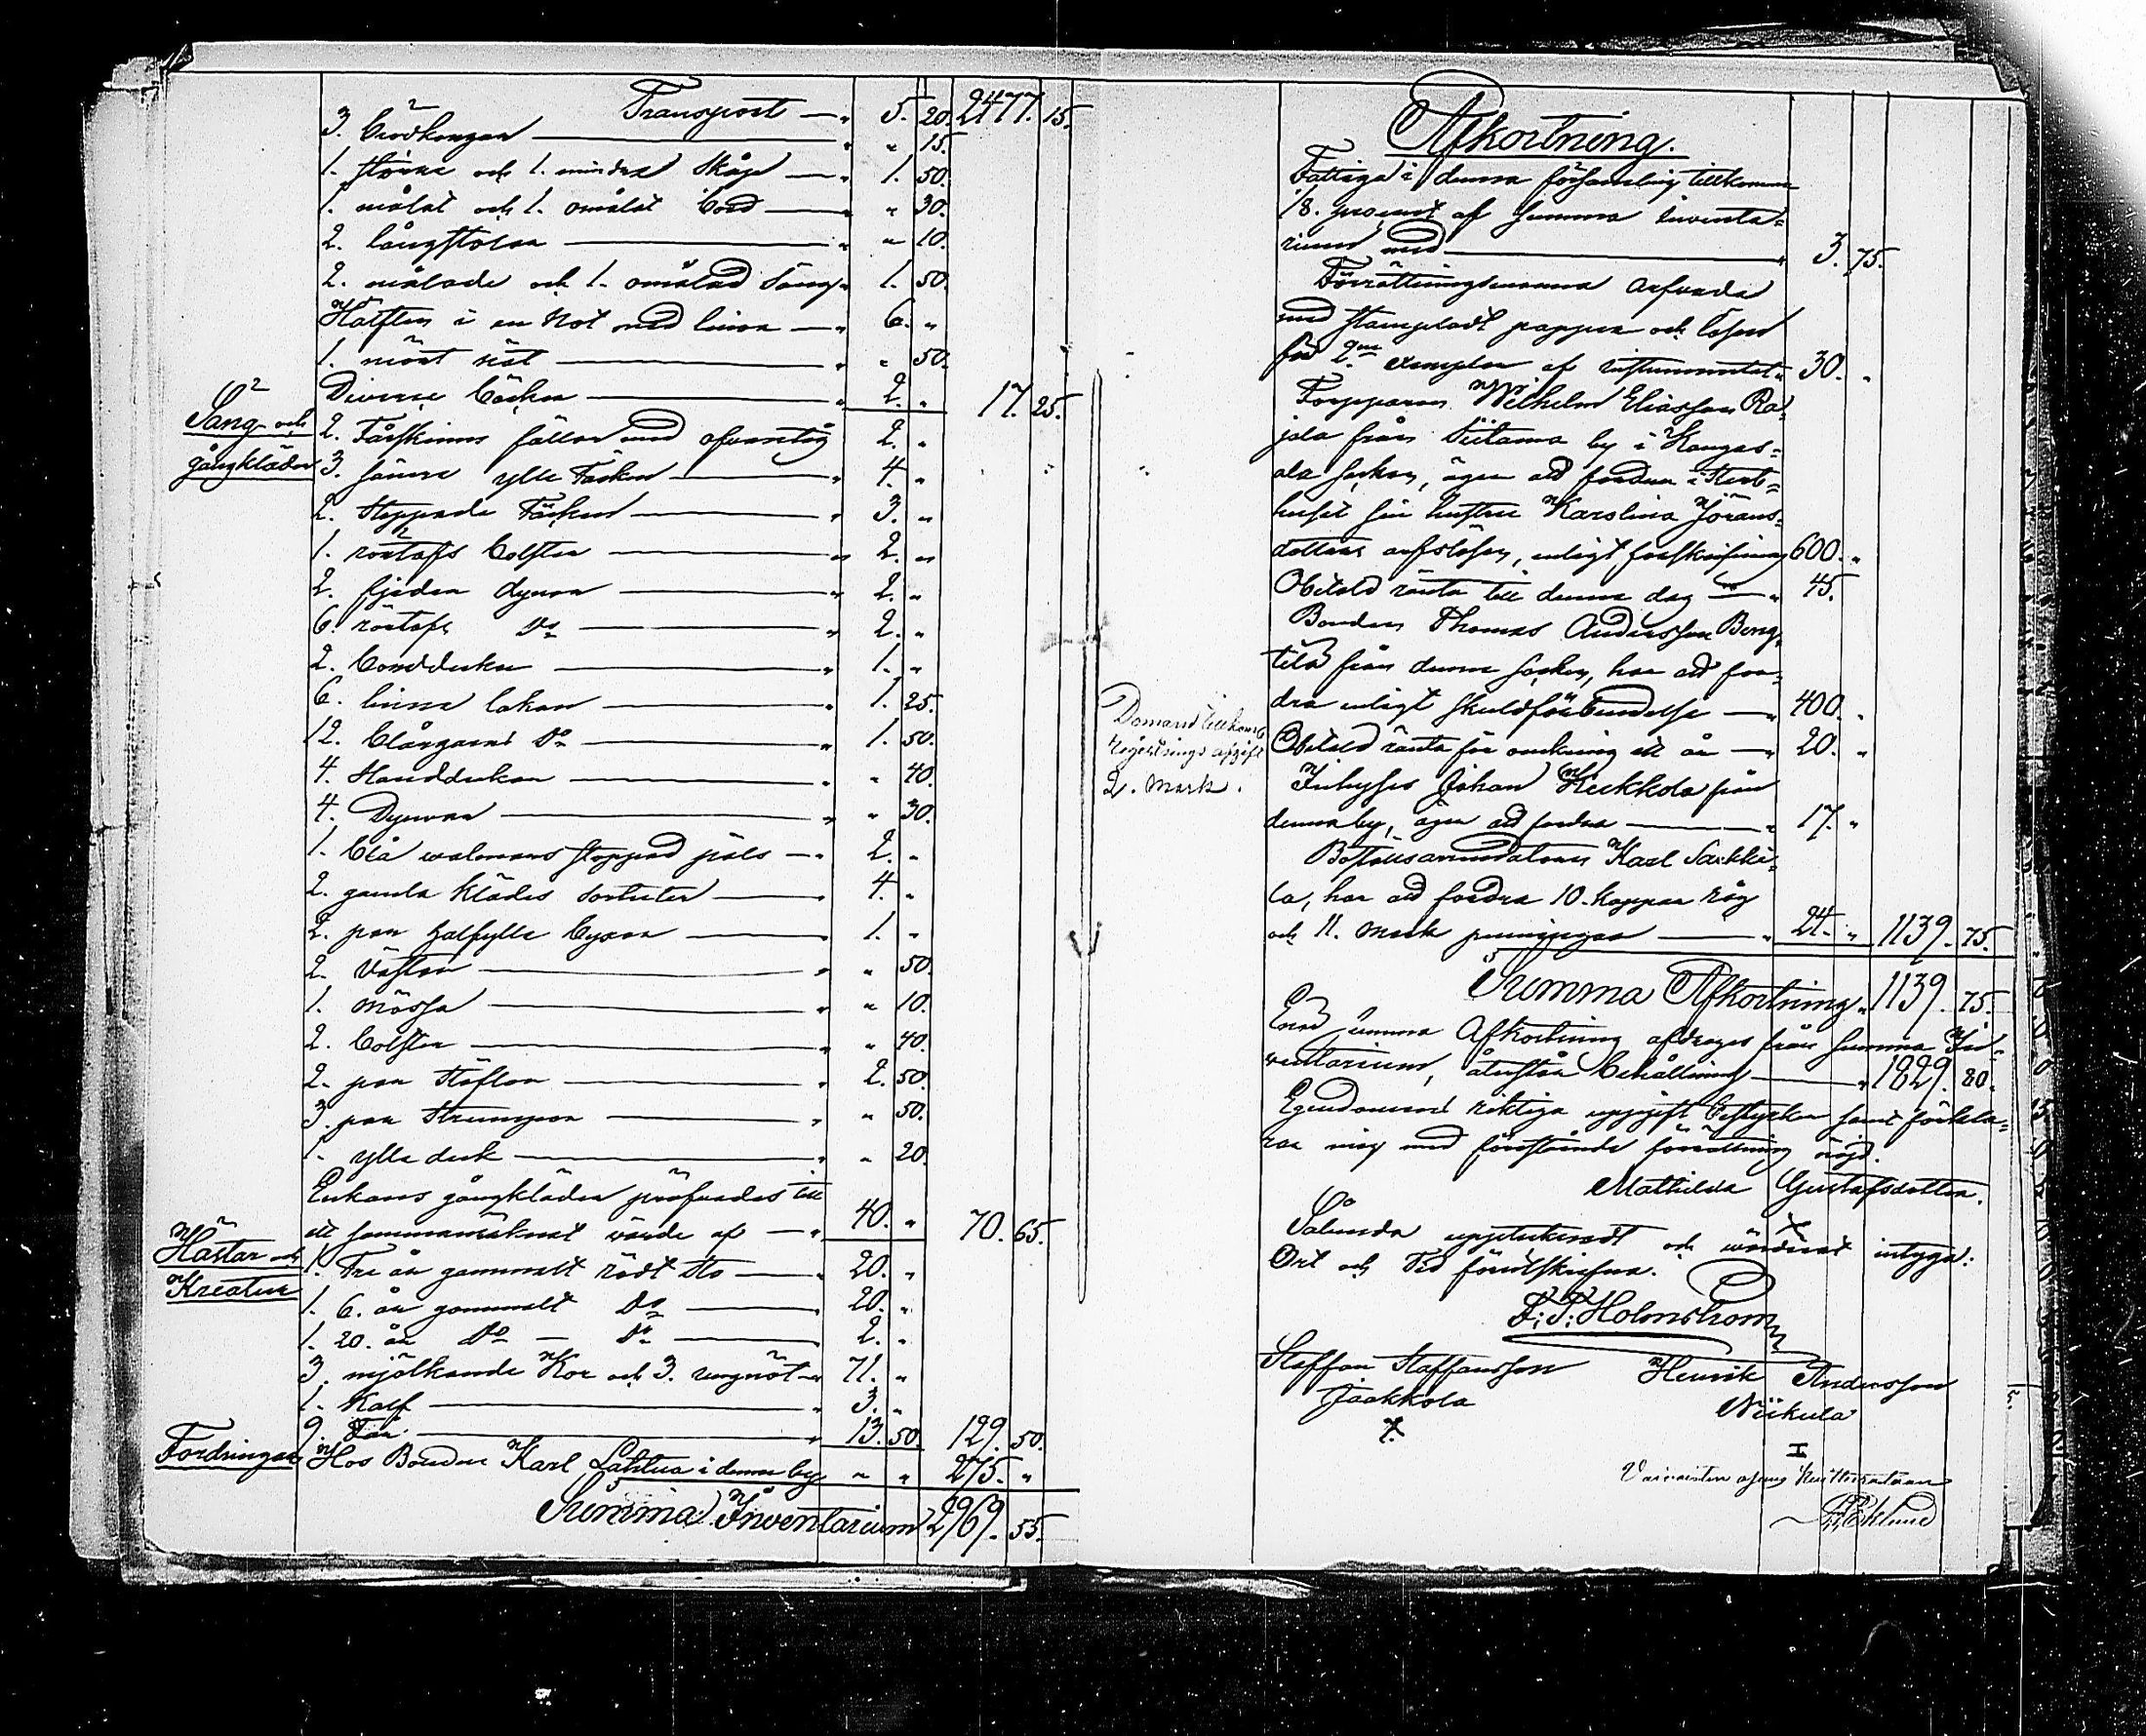 Transport — „ 5. 20. 2477. 15.
3. Brödkorgar — „ „ 15.
1. större och 1. mindre Skåp — „ 1. 50.
1. målat och 1. omålat bord — „ „ 30.
2. långstolar — „ „ 10.
2. målade och 1. omålad Säng „ 1. 50.
Hälften i en Not med linor — „ 6. „
1. mört nät — „ „ 50.
Diverse Böcker — „ 2. „ 17. 25.
Säng- och
gångkläder
2. Fårskinns fällar med ofvantyg 2. „
3. sämre ylle Täcken — „ 4. „
2. Stoppade Täcken — „ 3. „
1. röstofs bolster — „ 2. „
2. fjäder dynor — „ 2. „
6. röstofs Do — „ 2. „
2. Bordduker — „ 1. „
6. linne lakan — „ 1. 25.
12. blångarns Do — „ 1. 50.
4. Handduker — „ „ 40.
4. Dynvar — „ „ 30.
1. blå walmars stoppad päls — „ 2. „
2. gamla klädes Sortuter — 4. „
2. par halfylle byxor — 1. „
2. Västar — „ „ 50.
1. Mössa — „ „ 10.
2. bolster — „ „ 40.
2. par Stöflar — „ 2. 50.
3. par Strumpor — „ „ 50.
1. ylle duk — „ „ 20.
Enkans gångkläder pröfvades till
ett sammanräknat värde af — „ 40. „ 70. 65.
Hästar och
Kreatur
1. Tre år gammalt rödt Sto — 20. „
1. 6. år gammalt Do — 20. „
1. 20. år Do — Do — 2. „
3. mjölkande Kor och 3. ungnöt „ 71. „
1. Kalf — „ 3. „
9. Får — „ 13. 50. 129. 50.
Fordringar Hos Bonden Karl Lahtua i denna by „ „ 275. „
Summa Inventarium 2969. 55.
Afkortning.
Fattiga i denna församling tillkomma
1/8. procent af summa Inventa=
rium med — „ 3. 75.
Förrättningsmanna arfvode
med stämpladt papper och lösen
för 2ne exemplar af instrumentet „ 30. „
Torpparen Wilhelm Eliasson Ra=
jala från Tiitama by i Kangas=
ala socken, äger att fordra i Sterb=
huset sin hustru Karolina Jörans=
dotters arfslösen, enligt förskrifning 600. „
Obetald ränta till denna dag — „ 45.
Bonden Thomas Andersson Beng=
tilä från denna socken, har att for=
dra enligt skuldförbindelse — „ 400. „
Obetald ränta för omkring ett år — „ 20. „
Inhyses Johan Heikkola från
denna by, äger att fordra — „ 17. „
Boställsarrendatorn Karl Sarkki=
la, har att fordra 10. kappar råg
och 11. mark penningar — „ 24. „ 1139. 75.
Domaren tillkommer
registrings afgift
2. mark.
Summa Afkortning „ 1139. 75.
Enär summa Afkortning afdrages från summa In=
ventarium, återstår behållning — „ 1829. 80.
Egendomens riktiga uppgift bestyrker samt förkla=
rar mig med förestående förrättning nöjd.
Mathilda Gustafsdotter.
X
Sålunda upptecknadt och värderat intyga:
Ort och Tid förutskrifna.
F: T: Holmstrom
Staffan Staffansson
Jaakkola
X.
Henrik Andersson
Niikula
I